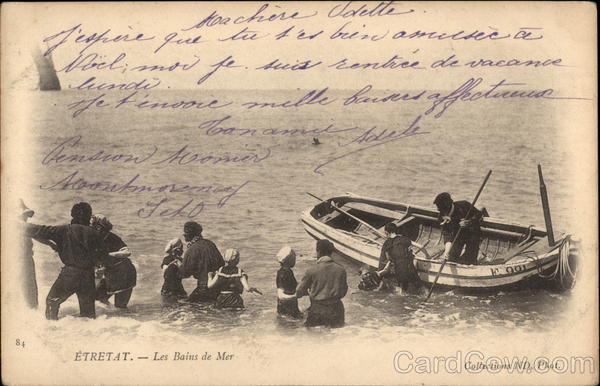 Ma chère Odette.
J'espère que tu t'es bien amusée à
Noël, moi je suis rentrée de vacance
lundi.
Je t'envoie mille baisers affectueux
Ton amie Adèle
Pension Monier
Montmorency
S et O
F 991
84
ÉTRETAT. — Les Bains de Mer
Collections ND. Phot.
CardCow.com